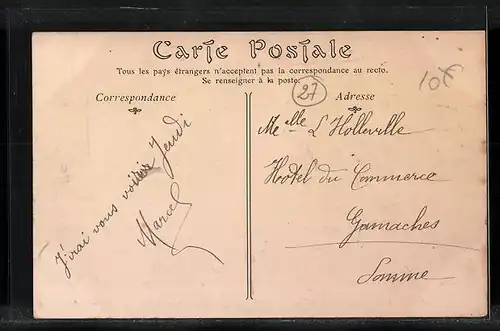 Carte Postale
Tous les pays étrangers n'acceptent pas la correspondance au recto.
Se renseigner à la poste.
Correspondance
Adresse
27
J'irai vous voir Jeudi
Marcel
Melle L Holleville
Hotel du Commerce
Gamaches
Somme